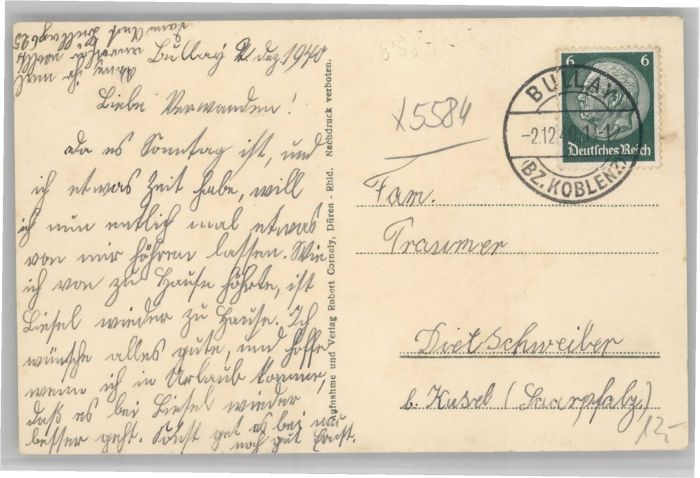 Bullay 2. dez. 1940
Liebe Verwanden!
da es Sonntag ist, und
ich etwas Zeit habe, will
ich nun entlich mal etwas
von mir höhren lassen. Wie
ich von zu Hause höhrte, ist
Liesel wieder zu Hause. Ich
wünsche alles gute, und hoffe
wenn ich in Urlaub komme,
daß es bei Liesel wieder
besser geht. Sonst get es bei mir
noch gut Ernst.
Aufnahme und Verlag Robert Cornely, Düren - Rhld. Nachdruck verboten.
X5584
6 6
Deutsches Reich
BULLAY
-2.12.40.11-12
(BZ. KOBLENZ)
Fam.
Traumer
Dietschweiber
b. Kusel (Saarpfalz)
12,-